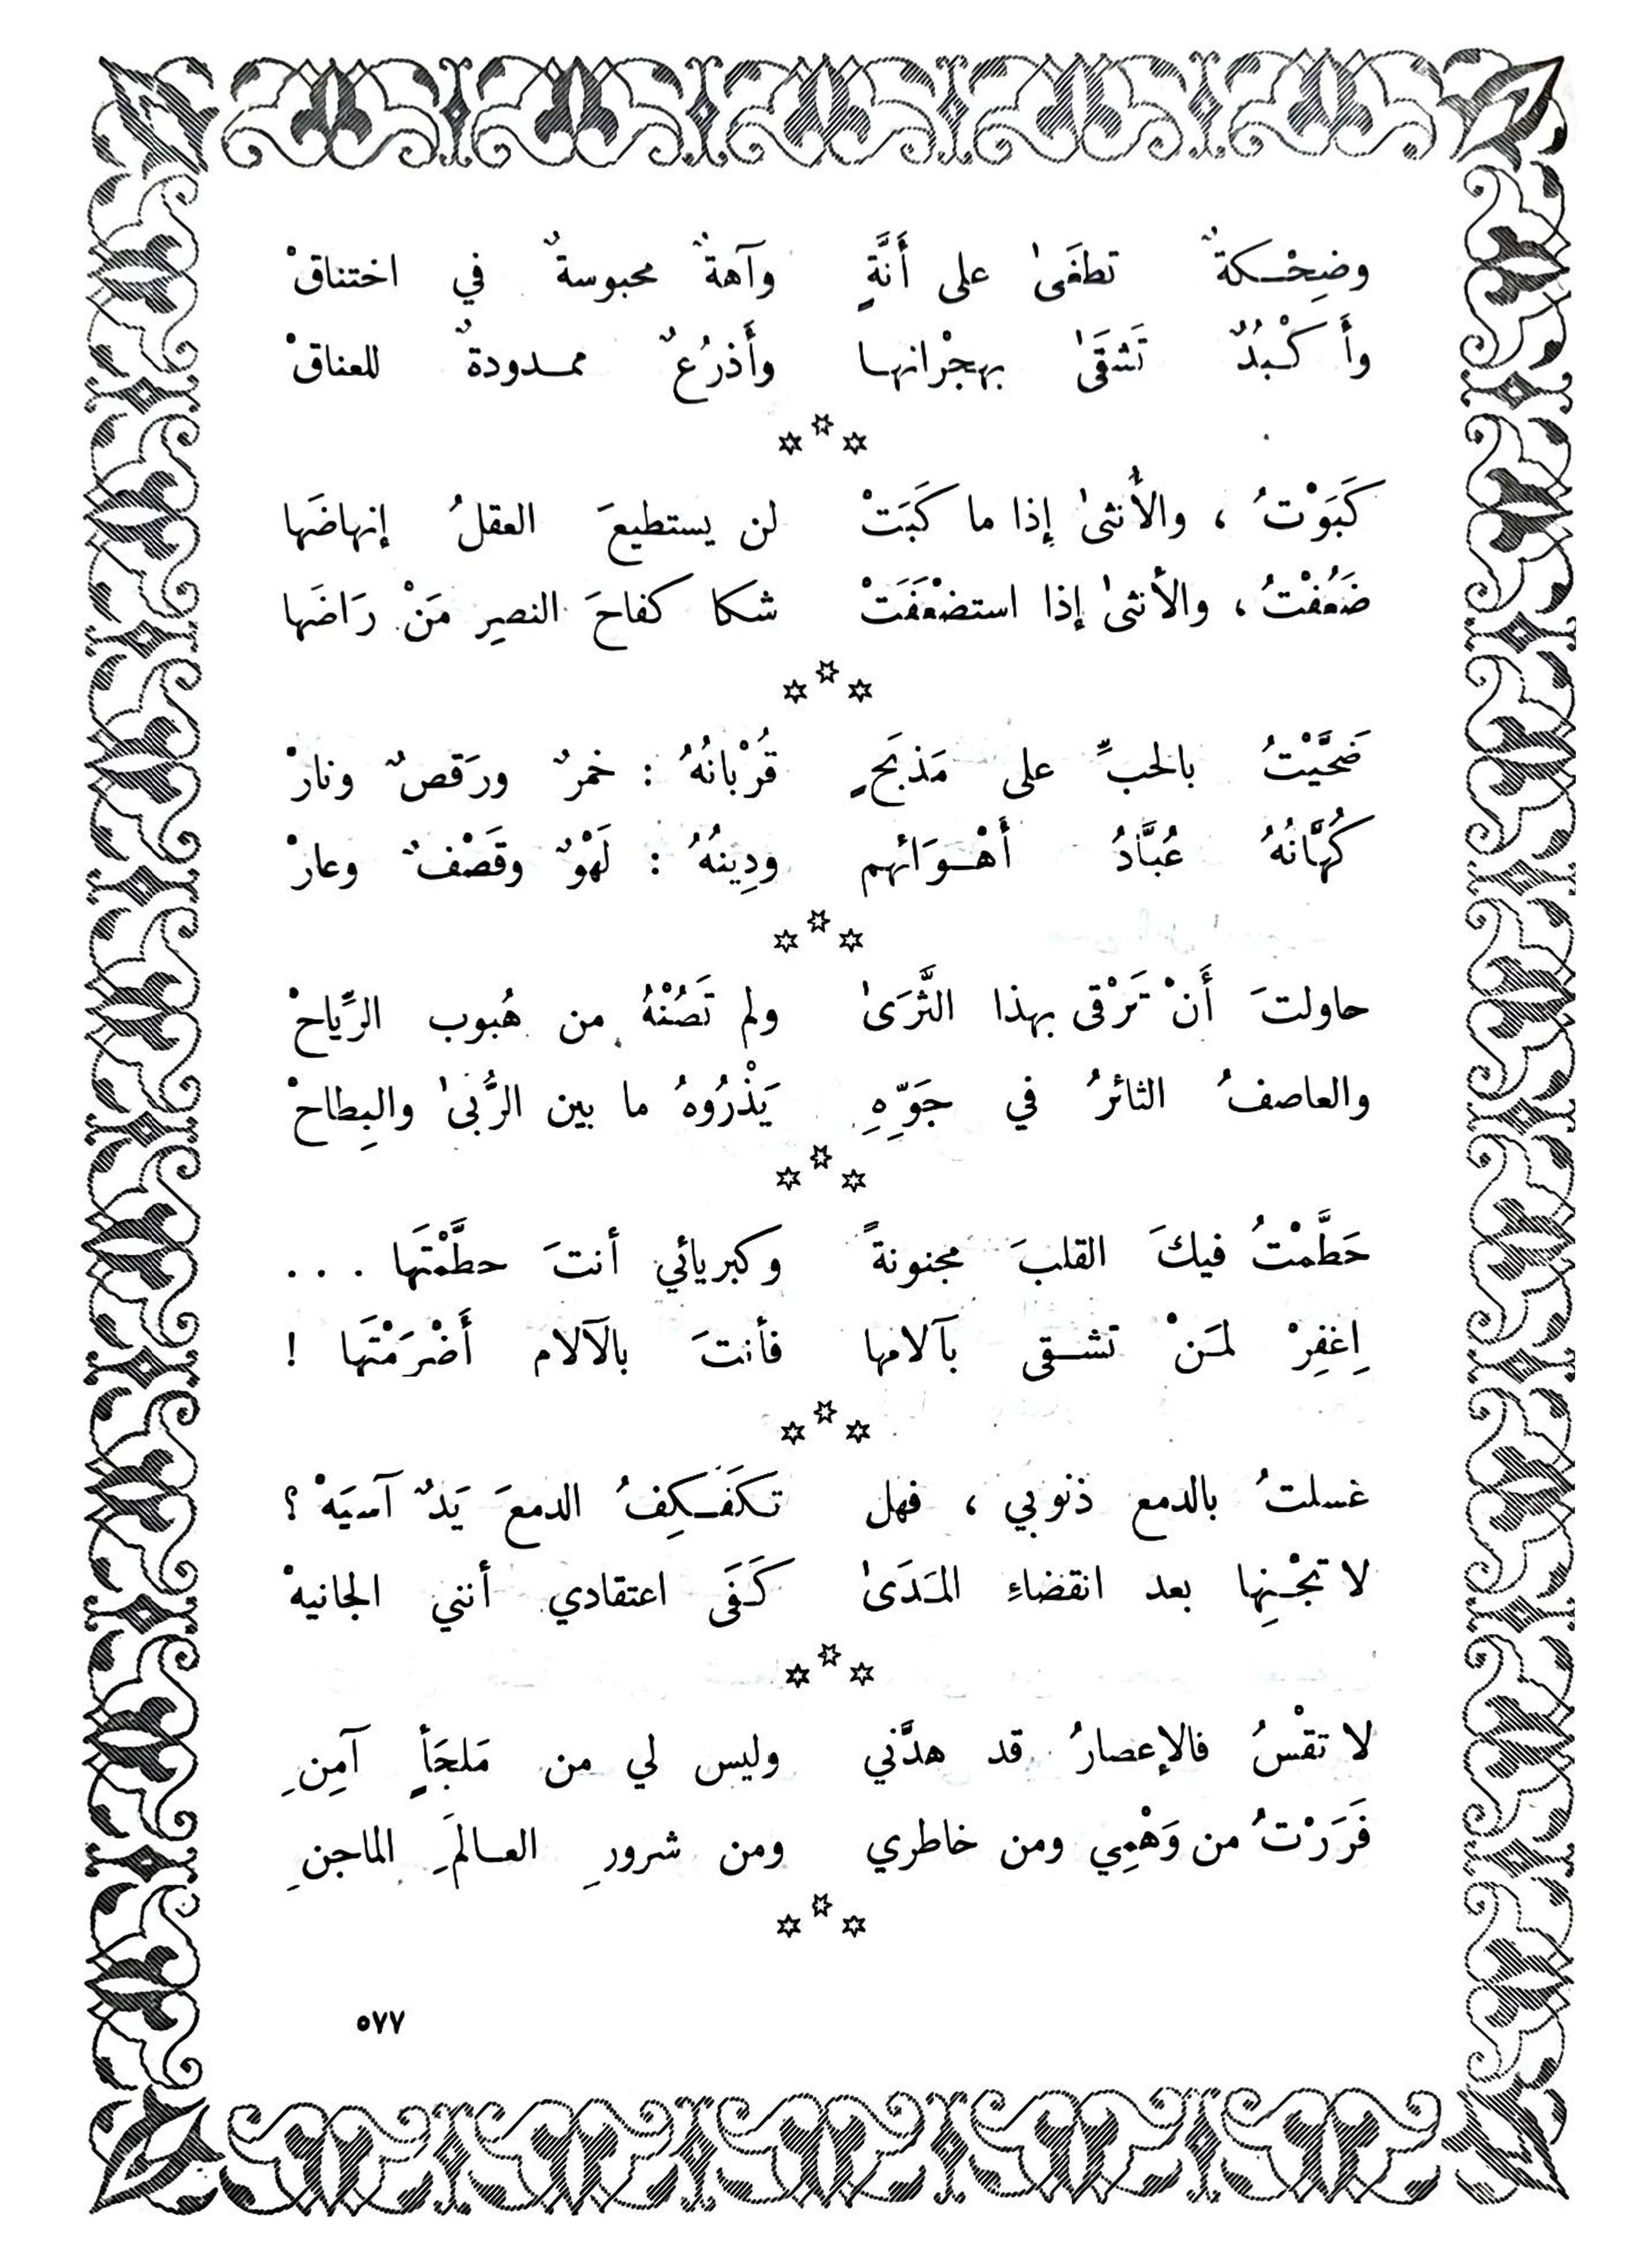 وضِحْكةٌ تطغَىٰ على أَنَّةٍ وآهةٌ محبوسةٌ في اختناقْ
وأَكْبُدٌ تَشقَىٰ بهجْرانها وأَذرُعٌ ممدودةٌ للعناقْ
كَبَوْتُ ، والأُنثىٰ إِذا ما كَبَتْ لن يستطيعَ العقلُ إنهاضَها
ضَعُفْتُ ، والأنثىٰ إذا استضْعَفَتْ شكا كفاحَ النصيرِ مَنْ رَاضَها
ضَحَّيْتُ بالحبِّ على مَذبَحٍ قُرْبانُهُ : خمرٌ ورَقصٌ ونارْ
كُهَّانُهُ عُبَّادُ أَهْوَائهم ودِينُهُ : لَهْوٌ وقَصْفٌ وعارْ
حاولتَ أَنْ تَرْقى بهذا الثَّرَىٰ ولم تَصُنْهُ من هُبوب الرِّياحْ
والعاصفُ الثائرُ في جَوِّهِ يَذْرُوهُ ما بين الرُّبىٰ والبِطاحْ
حَطَّمْتُ فيكَ القلبَ مجنونةً وكبريائي أنتَ حطَّمْتَها . . .
اِغفِرْ لمَنْ تشقى بآلامها فأنتَ بالآلام أَضْرَمْتَها !
غسلتُ بالدمع ذنوبي ، فهل تكَفكِفُ الدمعَ يَدٌ آسيَهْ ؟
لا تجْنِها بعد انقضاءِ المَدَىٰ كَفَى اعتقادي أنني الجانيهْ
لا تقْسُ فالإعصارُ قد هدَّني وليس لي من مَلجَأٍ آمِنِ
فَرَرْتُ من وَهْمِي ومن خاطري ومن شرورِ العالَمِ الماجنِ
٥٧٧